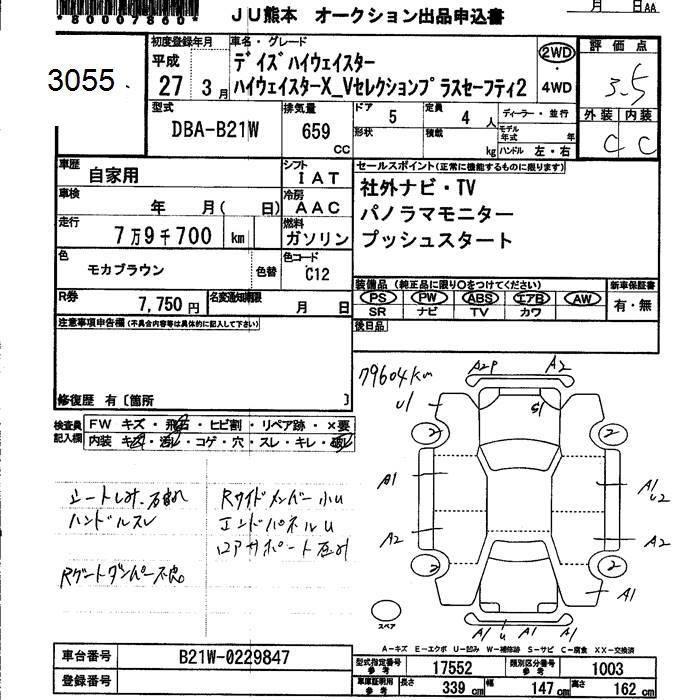 *80007860*
JU熊本 オークション出品申込書
月 日AA
3055
初度登録年月
平成
27 3月
車名・グレード
デイズハイウェイスター
ハイウェイスターX_Vセレクションプラスセーフティ2
2WD
・
4WD
評価点
3.5
外装 内装
C C
型式
DBA-B21W
排気量
659
cc
ドア 5
形状
定員 4 人
積載 kg
ディーラー・並行
モデル年式 年
ハンドル 左・右
車歴 自家用
車検 年 月( 日)
走行 7万9千700 km
色 モカブラウン 色替
シフト IAT
冷房 AAC
燃料 ガソリン
色コード C12
セールスポイント(正常に機能するものに限ります)
社外ナビ・TV
パノラマモニター
プッシュスタート
R券 7,750円
名変通知期限 月 日
装備品 (純正品に限り○をつけてください)
PS PW ABS エアB AW
SR ナビ TV カワ
新車保証書
有・無
後日品
注意事項申告欄(不具合内容等は具体的に記入して下さい)
修復歴 有〔箇所 〕
検査員記入欄
FW キズ・飛石・ヒビ割・リペア跡・×要
内装 キズ・汚レ・コゲ・穴・スレ・キレ・破レ
シートしみ・
ハンドルスレ
Rゲートダンパー不良
Rサイドメンバー小U
エンドパネルU
ロアサポート
79604km
A2P A2
U1 S1
2 2
A1 A1
U2
A2 A2
2 2
A1
A1 U A1 A1
スペア
A-キズ E-エクボ U-凹み W-補修跡 S-サビ C-腐食 XX-交換済
車台番号 B21W-0229847
登録番号
型式指定番号 参考 17552 類別区分番号 参考 1003
車庫証明用 参考 長さ 339 cm 幅 147 cm 高さ 162 cm